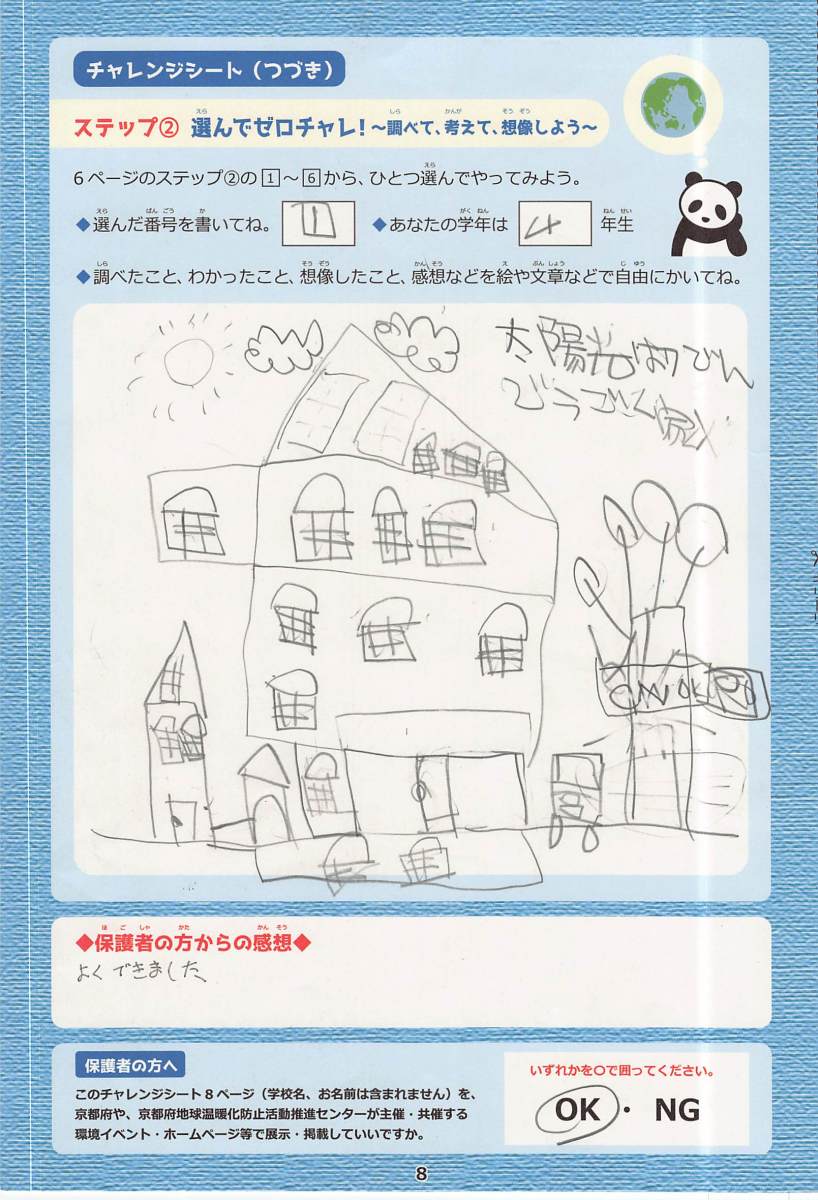 チャレンジシート（つづき）
ステップ② 選んでゼロチャレ！～調べて、考えて、想像しよう～
6ページのステップ②の1～6から、ひとつ選んでやってみよう。
◆選んだ番号を書いてね。 ◆あなたの学年は 4 年生
◆調べたこと、わかったこと、想像したこと、感想などを絵や文章などで自由にかいてね。
太陽光はつでん
◆保護者の方からの感想◆
よくできました
保護者の方へ
このチャレンジシート8ページ（学校名、お名前は含まれません）を、
京都府や、京都府地球温暖化防止活動推進センターが主催・共催する
環境イベント・ホームページ等で展示・掲載していいですか。
いずれかを〇で囲ってください。
OK・NG
8